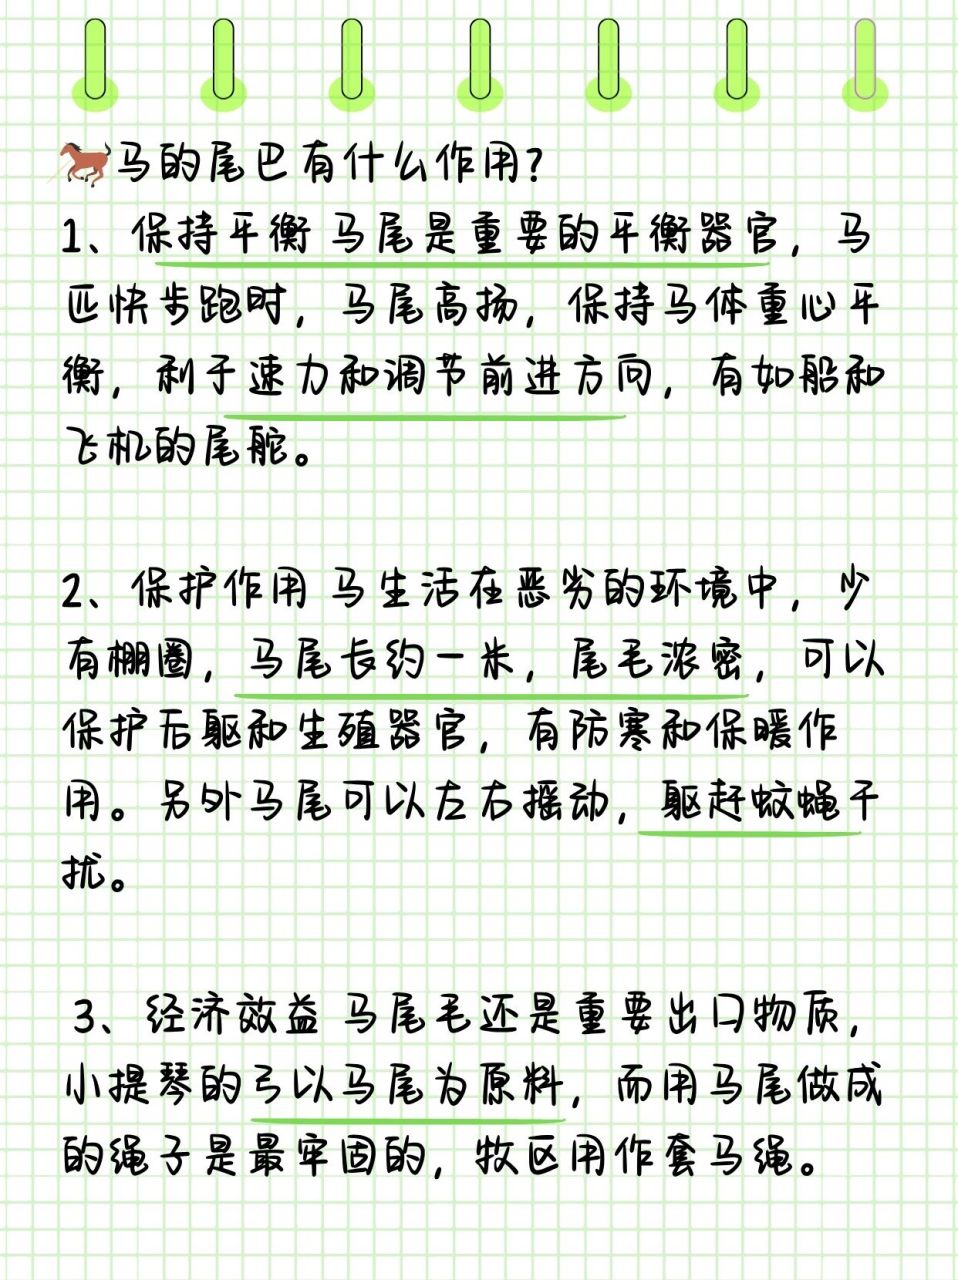 马的尾巴有什么作用?
1、保持平衡 马尾是重要的平衡器官，马
匹快步跑时，马尾高扬，保持马体重心平
衡，利于速力和调节前进方向，有如船和
飞机的尾舵。
2、保护作用 马生活在恶劣的环境中，少
有棚圈，马尾长约一米，尾毛浓密，可以
保护后躯和生殖器官，有防寒和保暖作
用。另外马尾可以左右摇动，驱赶蚊蝇干
扰。
3、经济效益 马尾毛还是重要出口物质，
小提琴的弓以马尾为原料，而用马尾做成
的绳子是最牢固的，牧区用作套马绳。